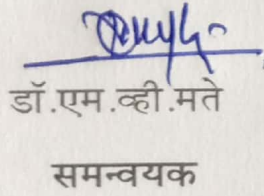 डॉ.एम.व्ही.मते
समन्वयक